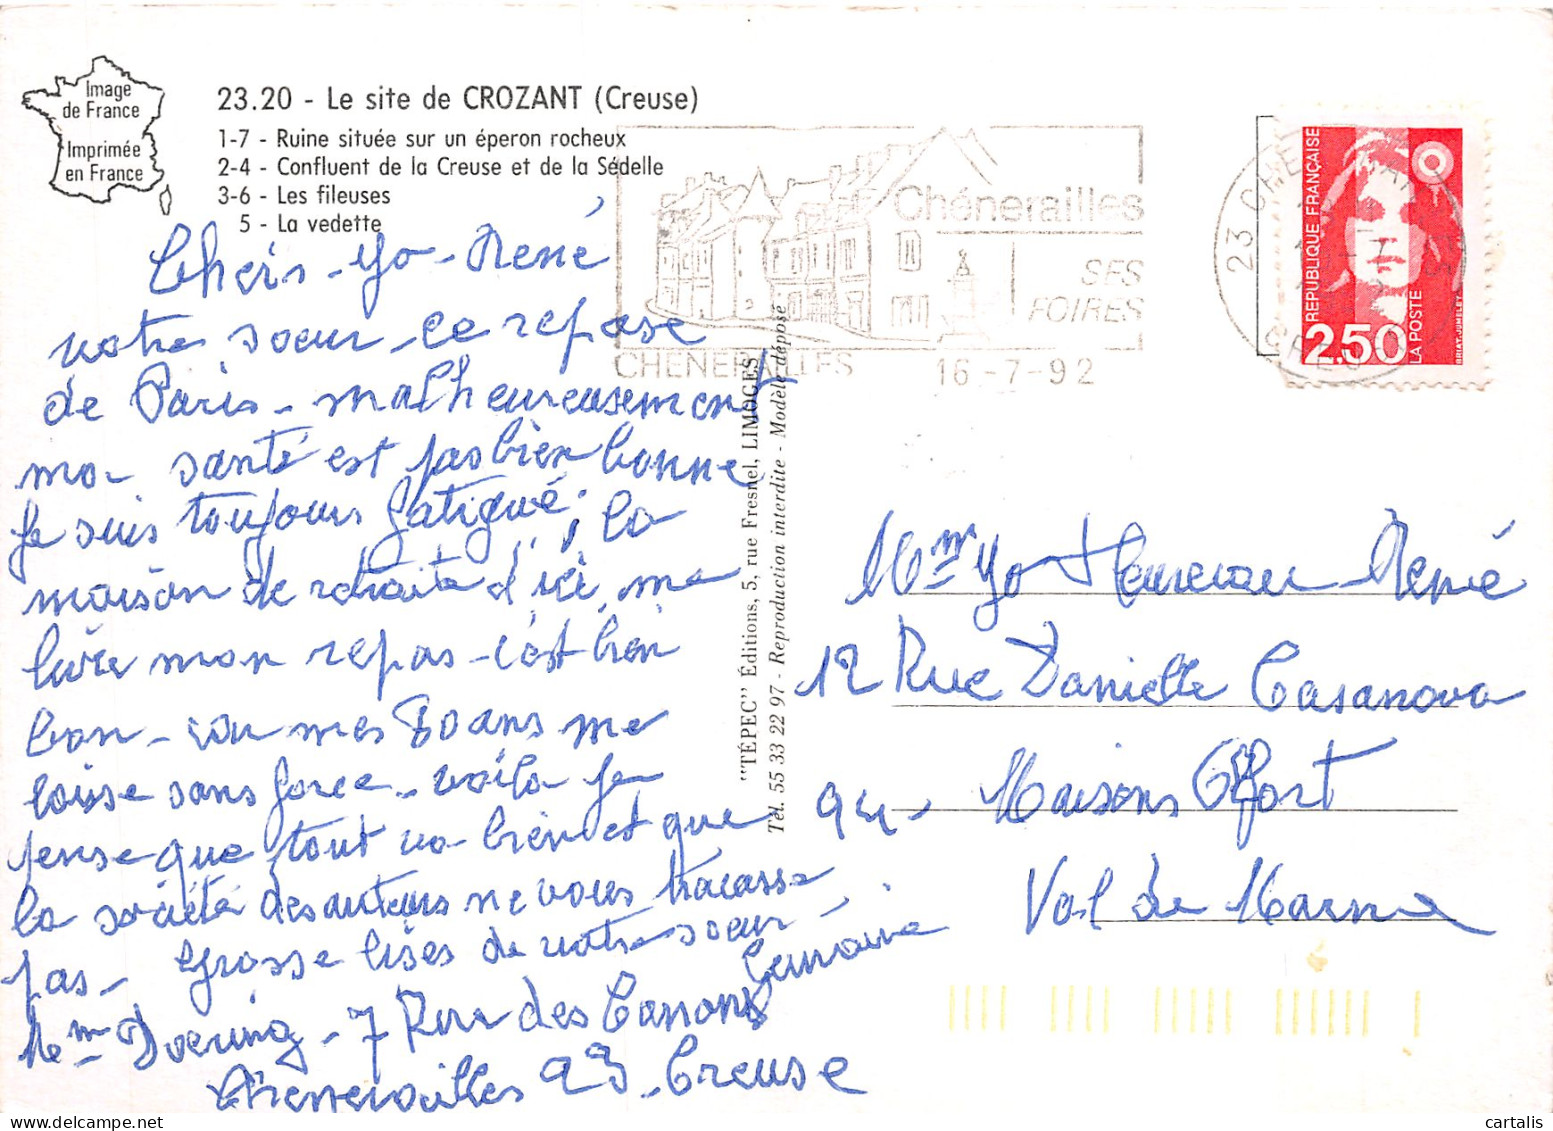 Image
de France
Imprimée
en France
23.20 - Le site de CROZANT (Creuse)
1-7 - Ruine située sur un éperon rocheux
2-4 - Confluent de la Creuse et de la Sédelle
3-6 - Les fileuses
5 - La vedette
Chers - Yo - René
votre soeur - ce repose
de Paris - malheureusement
ma santé est pas bien bonne
Je suis toujours fatigué, la
maison de retraite d'ici, me
livre mon repas - c'est bien
bon - mes 80 ans me
laisse sans force - voila je
pense que tout va bien et que
la société des auteurs ne vous tracasse
pas - Grosse bises de votre soeur -
Germaine
Mem Doering - 7 Rue des Canons
Chenerailles 23 - Creuse
"TÉPEC" Éditions, 5, rue Fresnel, LIMOGES
Tél. 55 33 22 97 - Reproduction interdite - Modèle déposé
Chénerailles
SES
FOIRES
CHENERAILLES 16-7-92
23 CHENERAILLES
CREUSE
REPUBLIQUE FRANÇAISE
2,50
LA POSTE
BRIAT-JUMELET
Mem Yo René
12 Rue Danielle Casanova
94 - Maisons Alfort
Val de Marne
cartalis